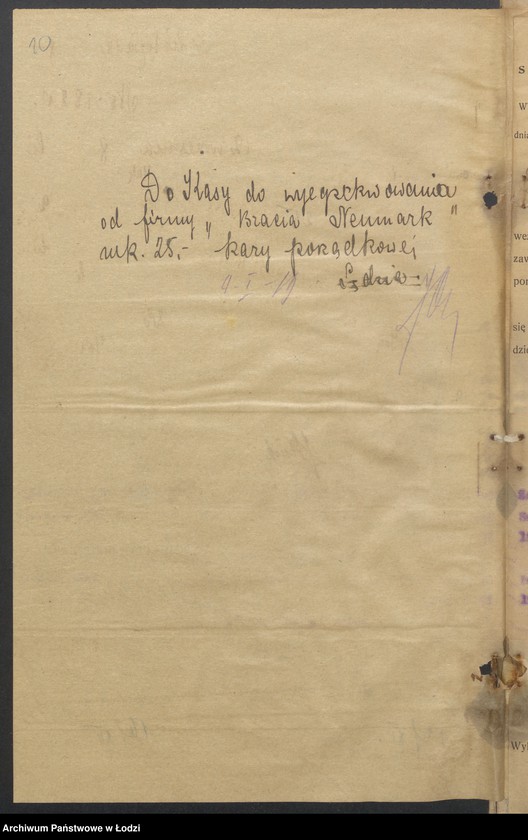 10
Do Kasy do wyegzekwowania
od firmy „Bracia Neumark"
mk. 25,- kary porządkowej
4-I-19. Sędzia:
S
W
dnia
wez
zaw
por
się
dzie
Wyk
Archiwum Państwowe w Łodzi